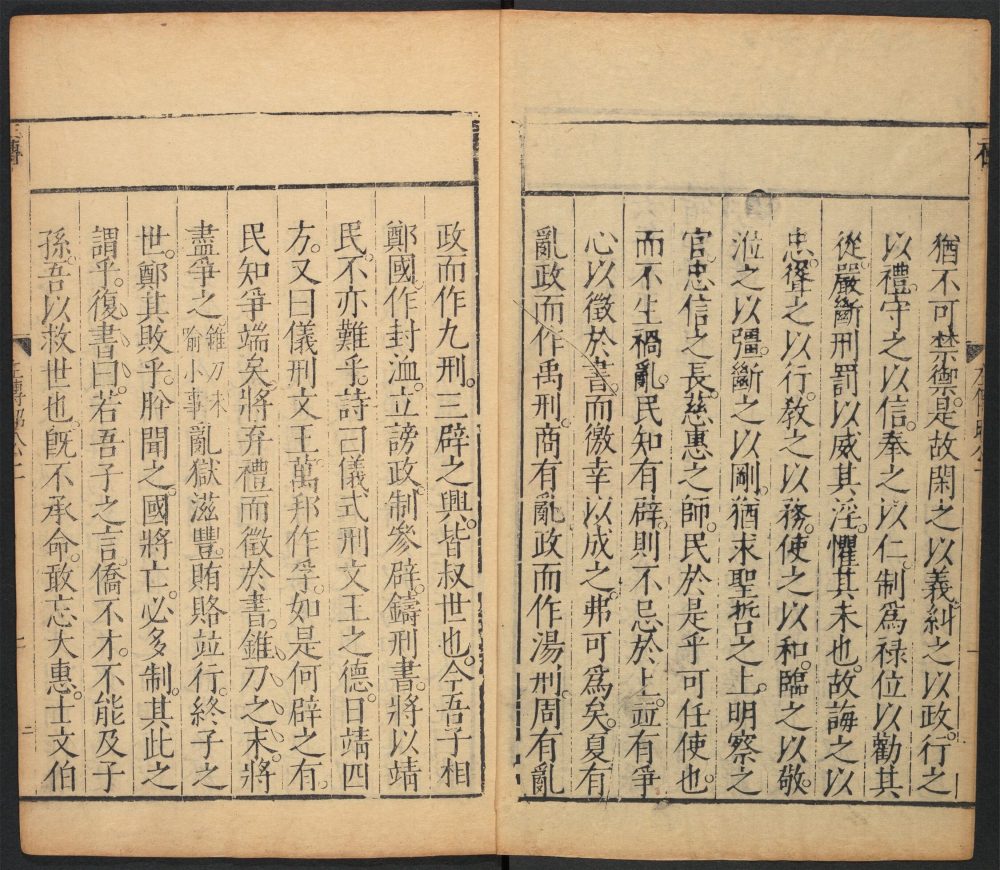 猶不可禁禦。是故閑之以義。糾之以政。行之
以禮。守之以信。奉之以仁。制爲祿位以勸其
從。嚴斷刑罰以威其淫。懼其未也。故誨之以
忠。聳之以行。敎之以務。使之以和。臨之以敬。
涖之以彊。斷之以剛。猶求聖哲之上。明察之
官。忠信之長。慈惠之師。民於是乎可任使也。
而不生禍亂。民知有辟。則不忌於上。竝有爭
心以徵於書。而徼幸以成之。弗可爲矣。夏有
亂政而作禹刑。商有亂政而作湯刑。周有亂
政而作九刑。三辟之興。皆叔世也。今吾子相
鄭國。作封洫。立謗政。制參辟。鑄刑書。將以靖
民。不亦難乎。詩曰儀式刑文王之德。日靖四
方。又曰儀刑文王。萬邦作孚。如是何辟之有。
民知爭端矣。將弃禮而徵於書。錐刀之末。將
盡爭之錐刀末喻小事亂獄滋豐。賄賂竝行。終子之
世。鄭其敗乎。肸聞之。國將亡。必多制。其此之
謂乎。復書曰。若吾子之言。僑不才。不能及子
孫。吾以救世也。旣不承命。敢忘大惠。士文伯
二